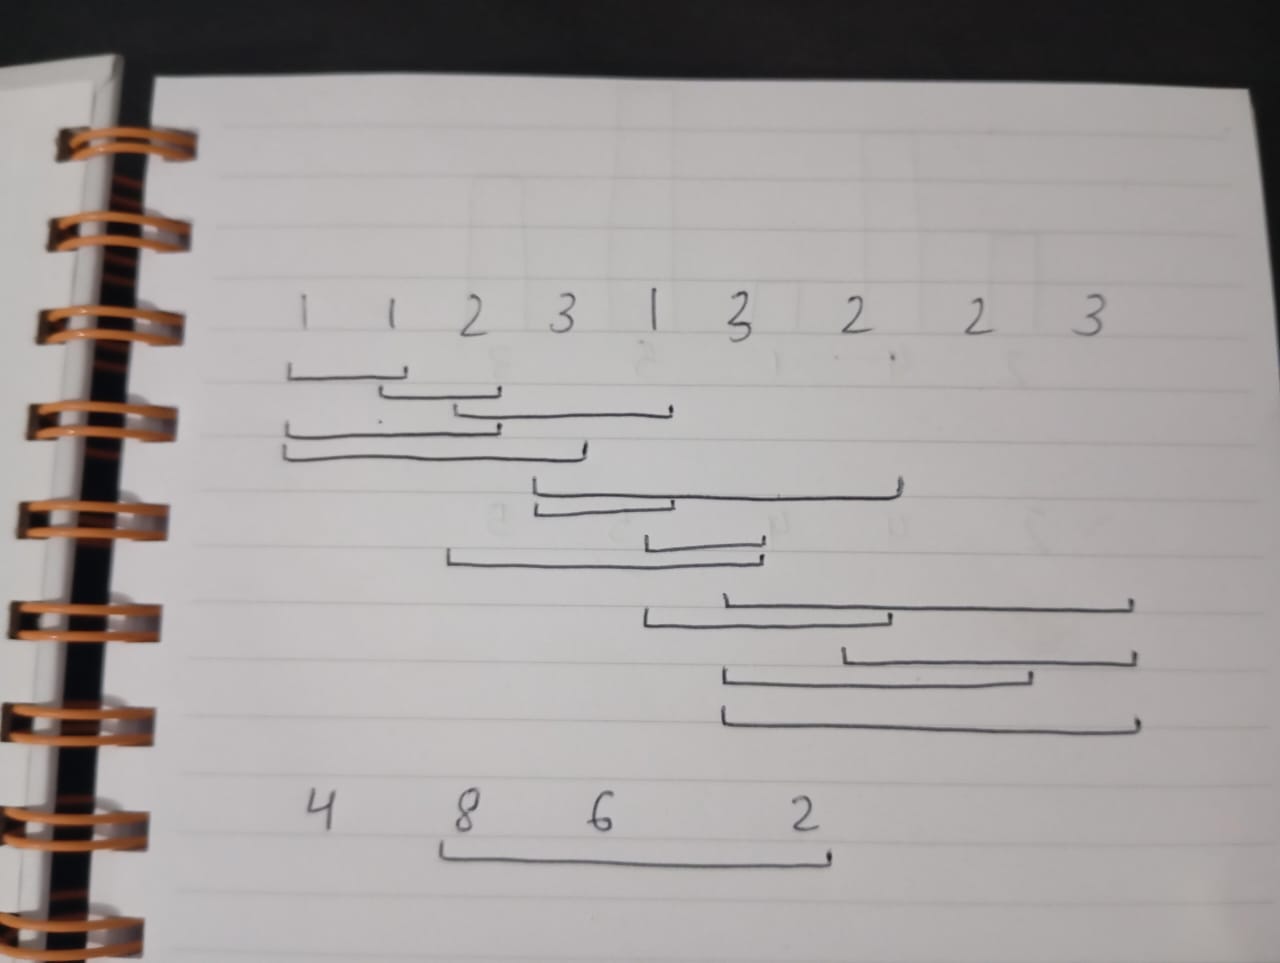 1 1 2 3 1 3 2 2 3
4 8 6 2